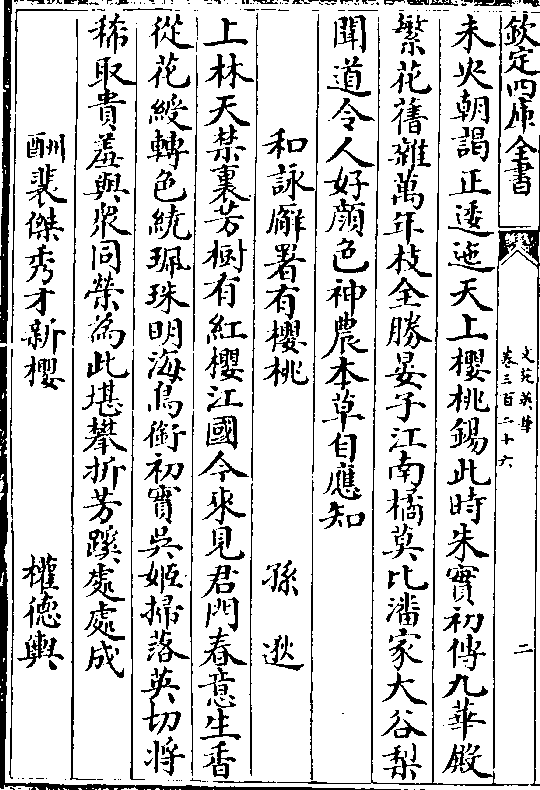 欽定四庫全書
文苑英華
卷三百二十六
二
未央朝謁正逶迤天上櫻桃錫此時朱實初傳九華殿
繁花舊雜萬年枝全勝晏子江南橘莫比潘家大谷梨
聞道令人好顔色神農本草自應知
和詠廨署有櫻桃 孫逖
上林天禁裏芳樹有紅櫻江國今來見君門春意生香
從花綬轉色繞珮珠明海鳥銜初實吳姬掃落英切將
稀取貴羞與衆同榮為此堪攀折芳蹊處處成
酬裴傑秀才新櫻 權德輿